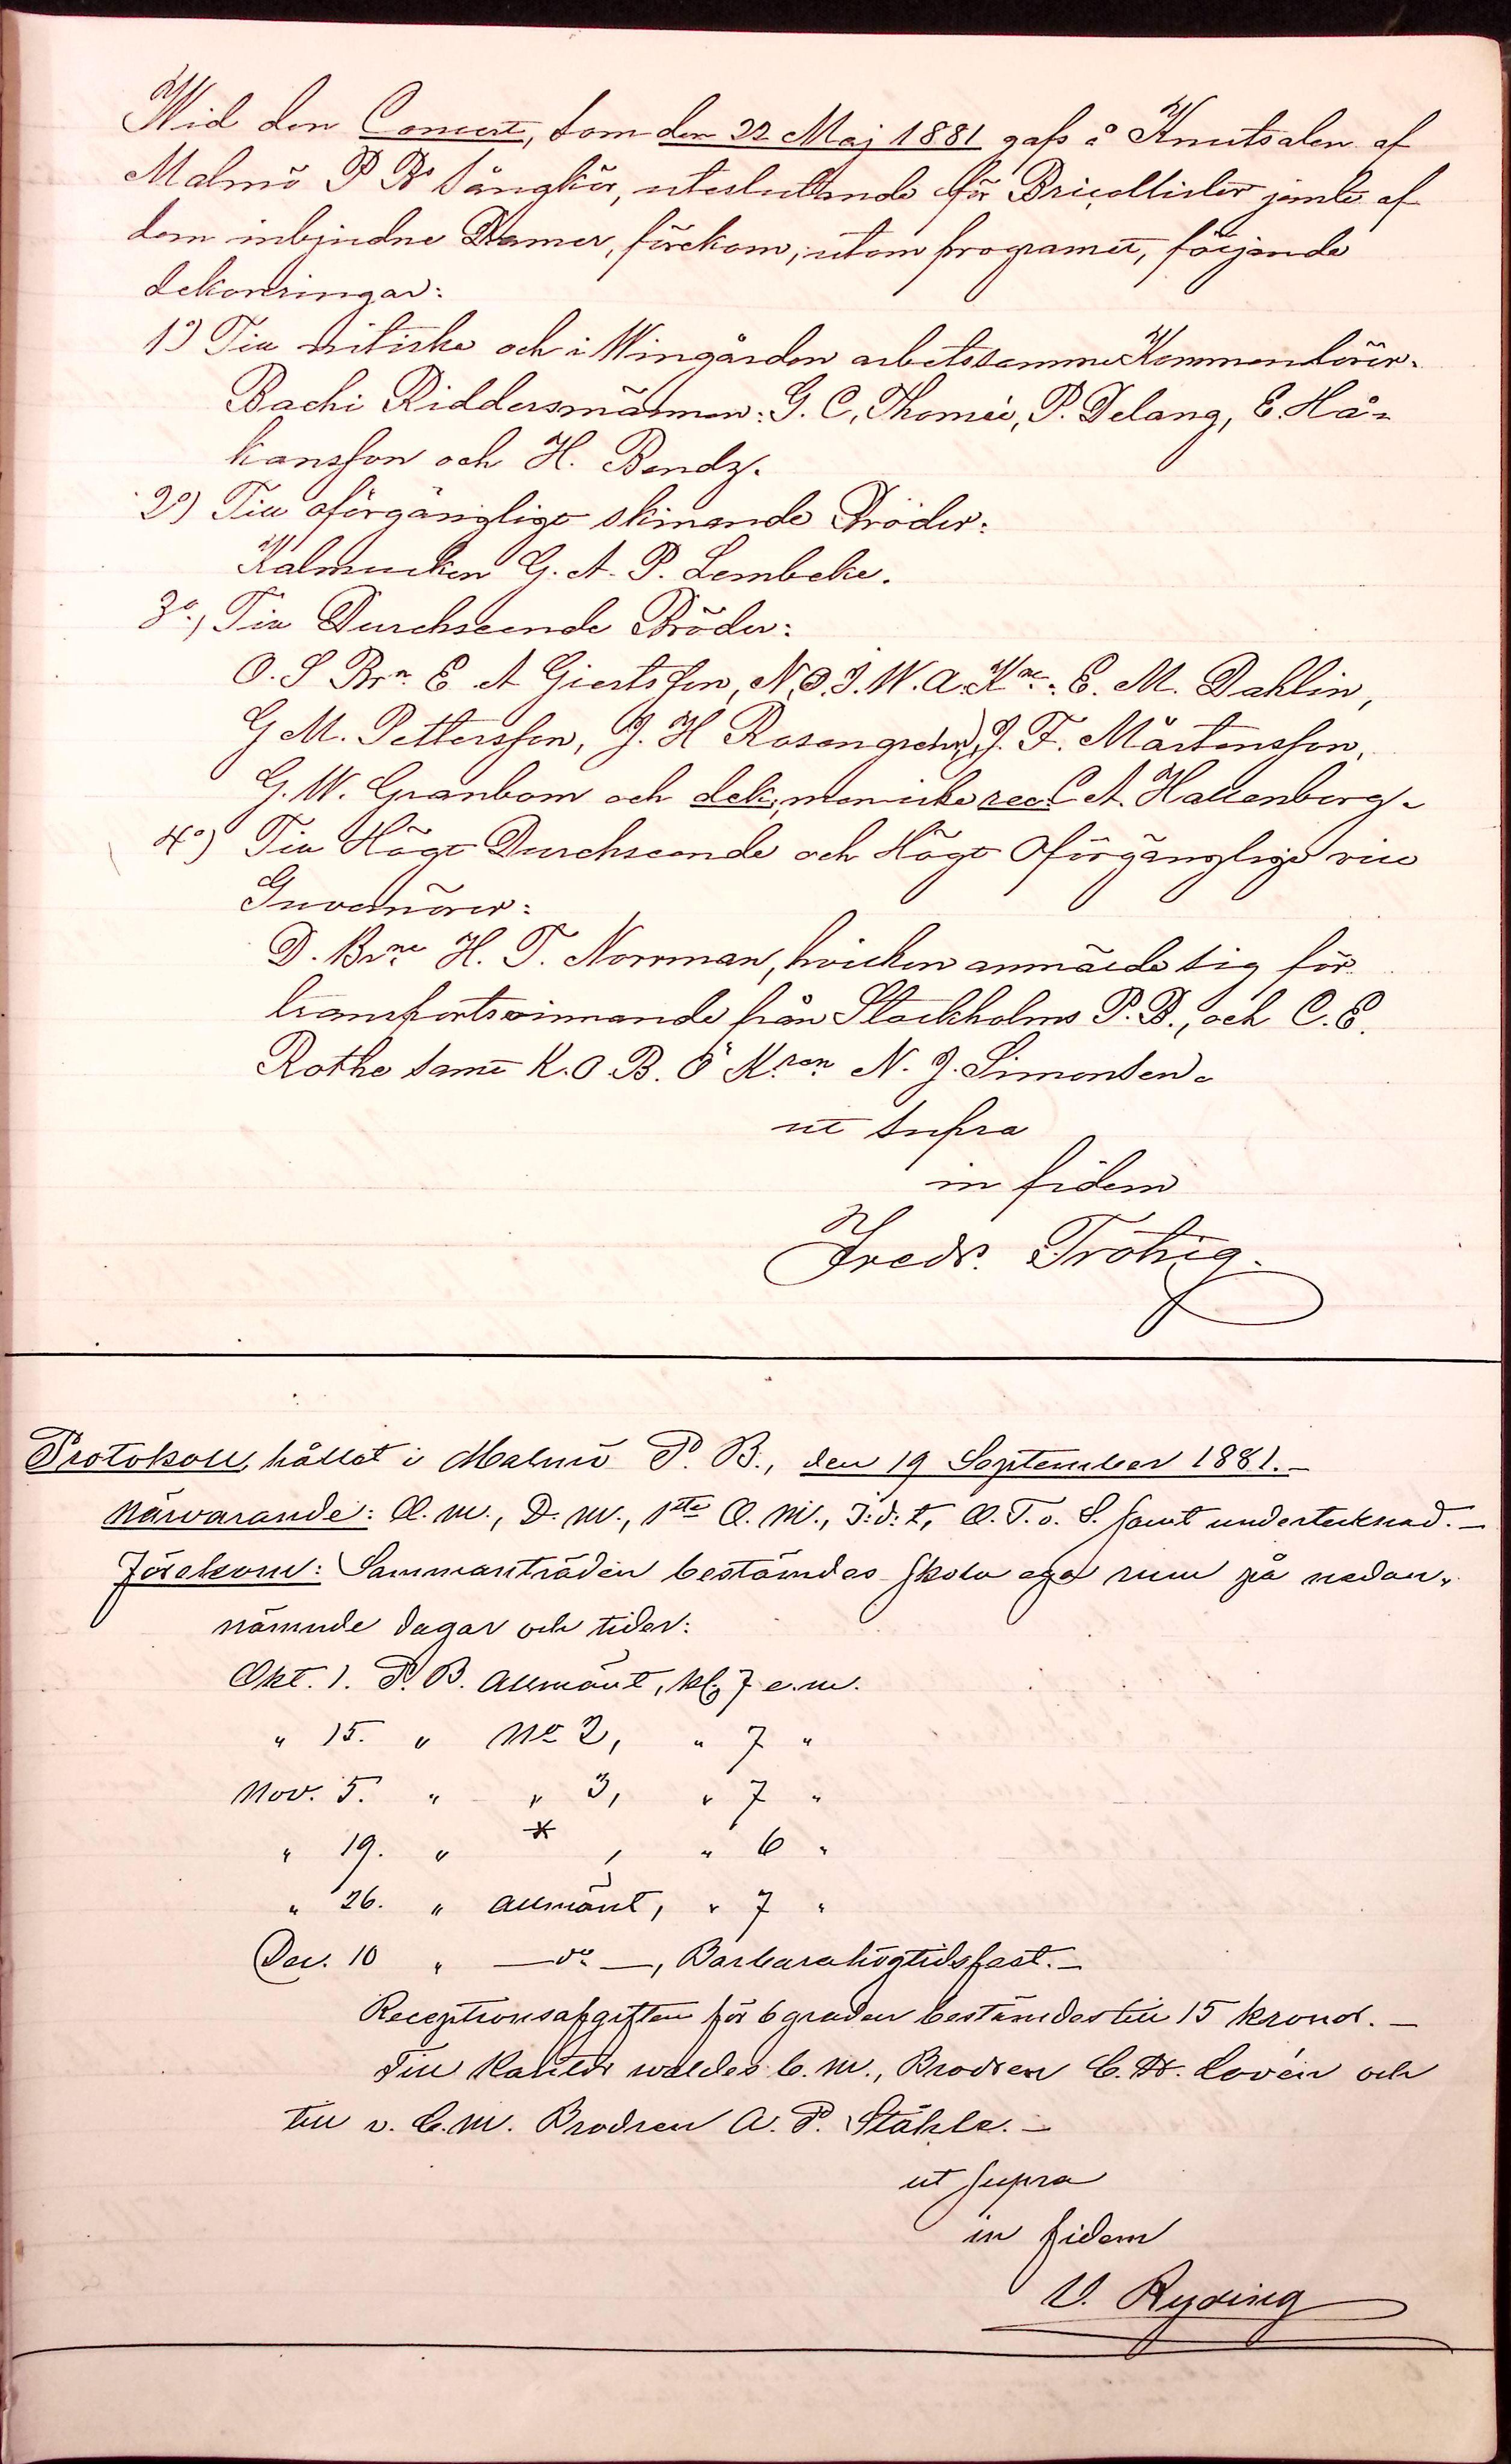 Wid den Concert, som den 22 Maj 1881 gafs å Knutsalen af
Malmö P Bs Sångkör, uteslutande för Bricollister jemte af
dem inbjudne Damer, förekom, utom programet, följande
dekoreringar:
1o) Till nitiske och i Wingården arbetssamme Kommendörer.
Bachi Riddersmännen: G. C. Thomée, P. Delang, E. Hå-
kansson och H. Bendz.
2o) Till oförgänglige skinande Bröder:
Kalmucken G. A. P. Lembcke.
3o, Till Durchseende Bröder:
O. S Brn. E A Giertsson, N. O. I. W. A. Kne. E. M. Dahlin,
G M. Pettersson, J. H Rosengrehn, J. F. Mårtensson,
G. W. Granbom och dek, meniske rec. C A. Hallenborg.
4o) Till Högt Durchseende och Högt Oförgänglige vice
Guvernörer:
D. Brne H. T. Norrman, hvilken anmälde sig för
transportsvinnande från Stockholms P. B., och C. E.
Rothe samt K. O. B. Ö Kren N. J. Simonsen.
ut supra
in fidem
Fredr. Tröhig.
Protokoll, hållet i Malmö P. B., den 19 September 1881.—
Närvarande: O. M., D. M., 1ste O. M., I. d. t, O. T. o. S. samt undertecknad.—
Förekom: Sammanträden bestämdes skola ega rum på nedan-
nämnde dagar och tider:
Okt. 1. P. B. Allmänt, kl. 7 e. m.
" 15. " No 2, " 7 "
Nov. 5. " " 3, " 7 "
" 19. " * , " 6 "
" 26. " allmänt, " 7 "
Dec. 10 " —do—, Barbarahögtidsfest.—
Receptionsafgiften för 6 graden bestämdes till 15 kronor.—
Till Kantor waldes C. M., Brodren C. H. Lovén och
till v. C. M. Brodren A. P. Ståhle.—
ut supra
in fidem
V. Ryding